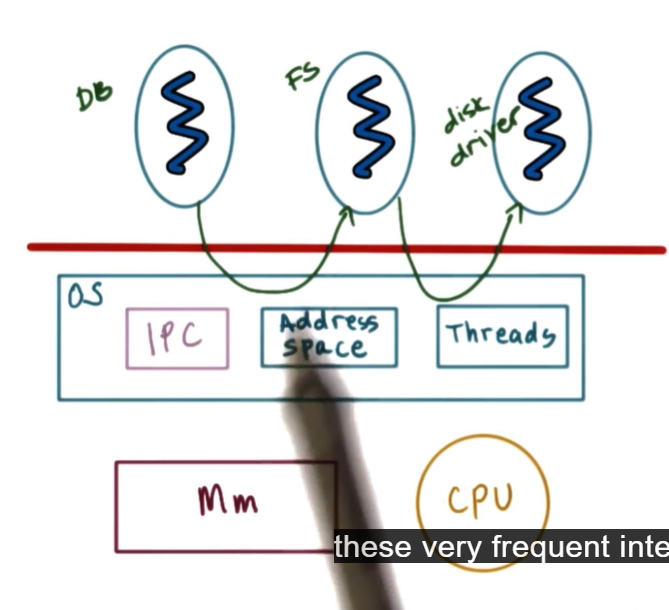 DB
FS
disk
driver
OS
IPC
Address
space
Threads
Mm
CPU
these very frequent inte